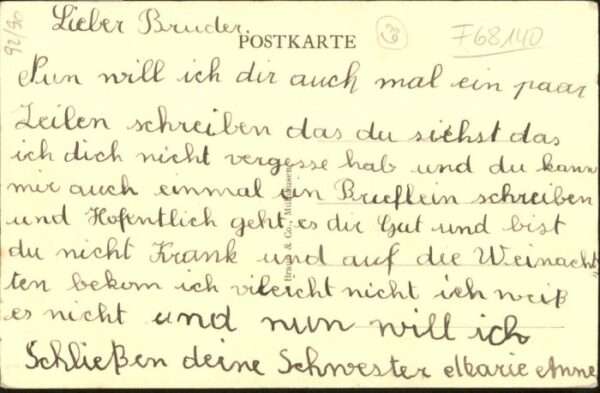 Lieber Bruder.
POSTKARTE
F68140
92/90
Nun will ich dir auch mal ein paar
Zeilen schreiben das du siehst das
ich dich nicht vergesse hab und du kann
mir auch einmal ein Brieflein schreiben
und Hofentlich geht es dir Gut und bist
du nicht Krank und auf die Weinach
ten bekom ich vileicht nicht ich weiß
es nicht und nun will ich
Schließen deine Schwester Marie Anne